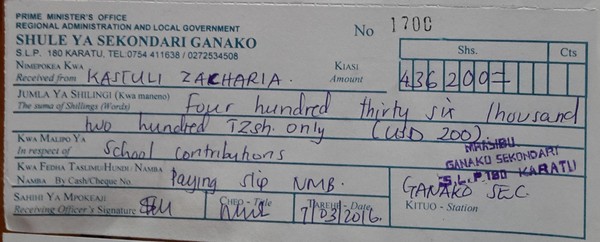 PRIME MINISTER'S OFFICE
REGIONAL ADMINISTRATION AND LOCAL GOVERNMENT
No 1700
SHULE YA SEKONDARI GANAKO
S.L.P. 180 KARATU, TEL:0754 411638 / 0272534508
Shs. Cts
NIMEPOKEA KWA KIASI
Received from KASTULI ZACHARIA. Amount 436200=
JUMLA YA SHILINGI (Kwa maneno)
The suma of Shillings (Words) Four hundred thirty six thousand
two hundred TZsh. only (USD 200).
KWA MALIPO YA
In respect of School contributions
MHASIBU
GANAKO SEKONDARI
S.L.P 180 KARATU
KWA FEDHA TASLIMU/HUNDI NAMBA
NAMBA By Cash/Cheque No. Paying slip NMB.
GANAKO SEC.
SAHIHI YA MPOKEAJI CHEO - Title TAREHE - Date KITUO - Station
Receiving Officer's Signature 7/03/2016.